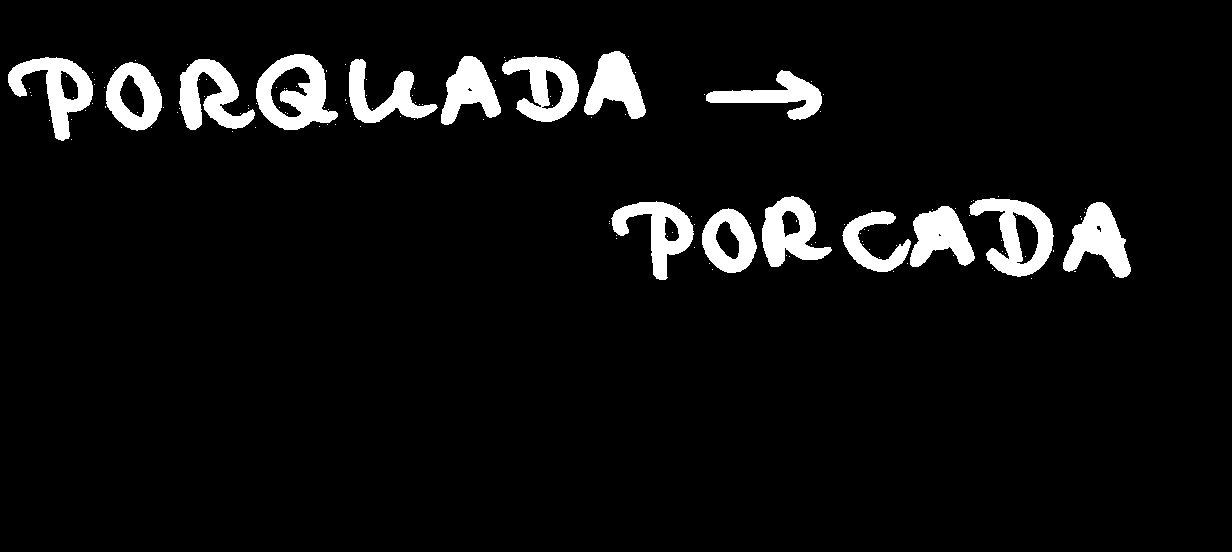 PORQUADA →
PORCADA